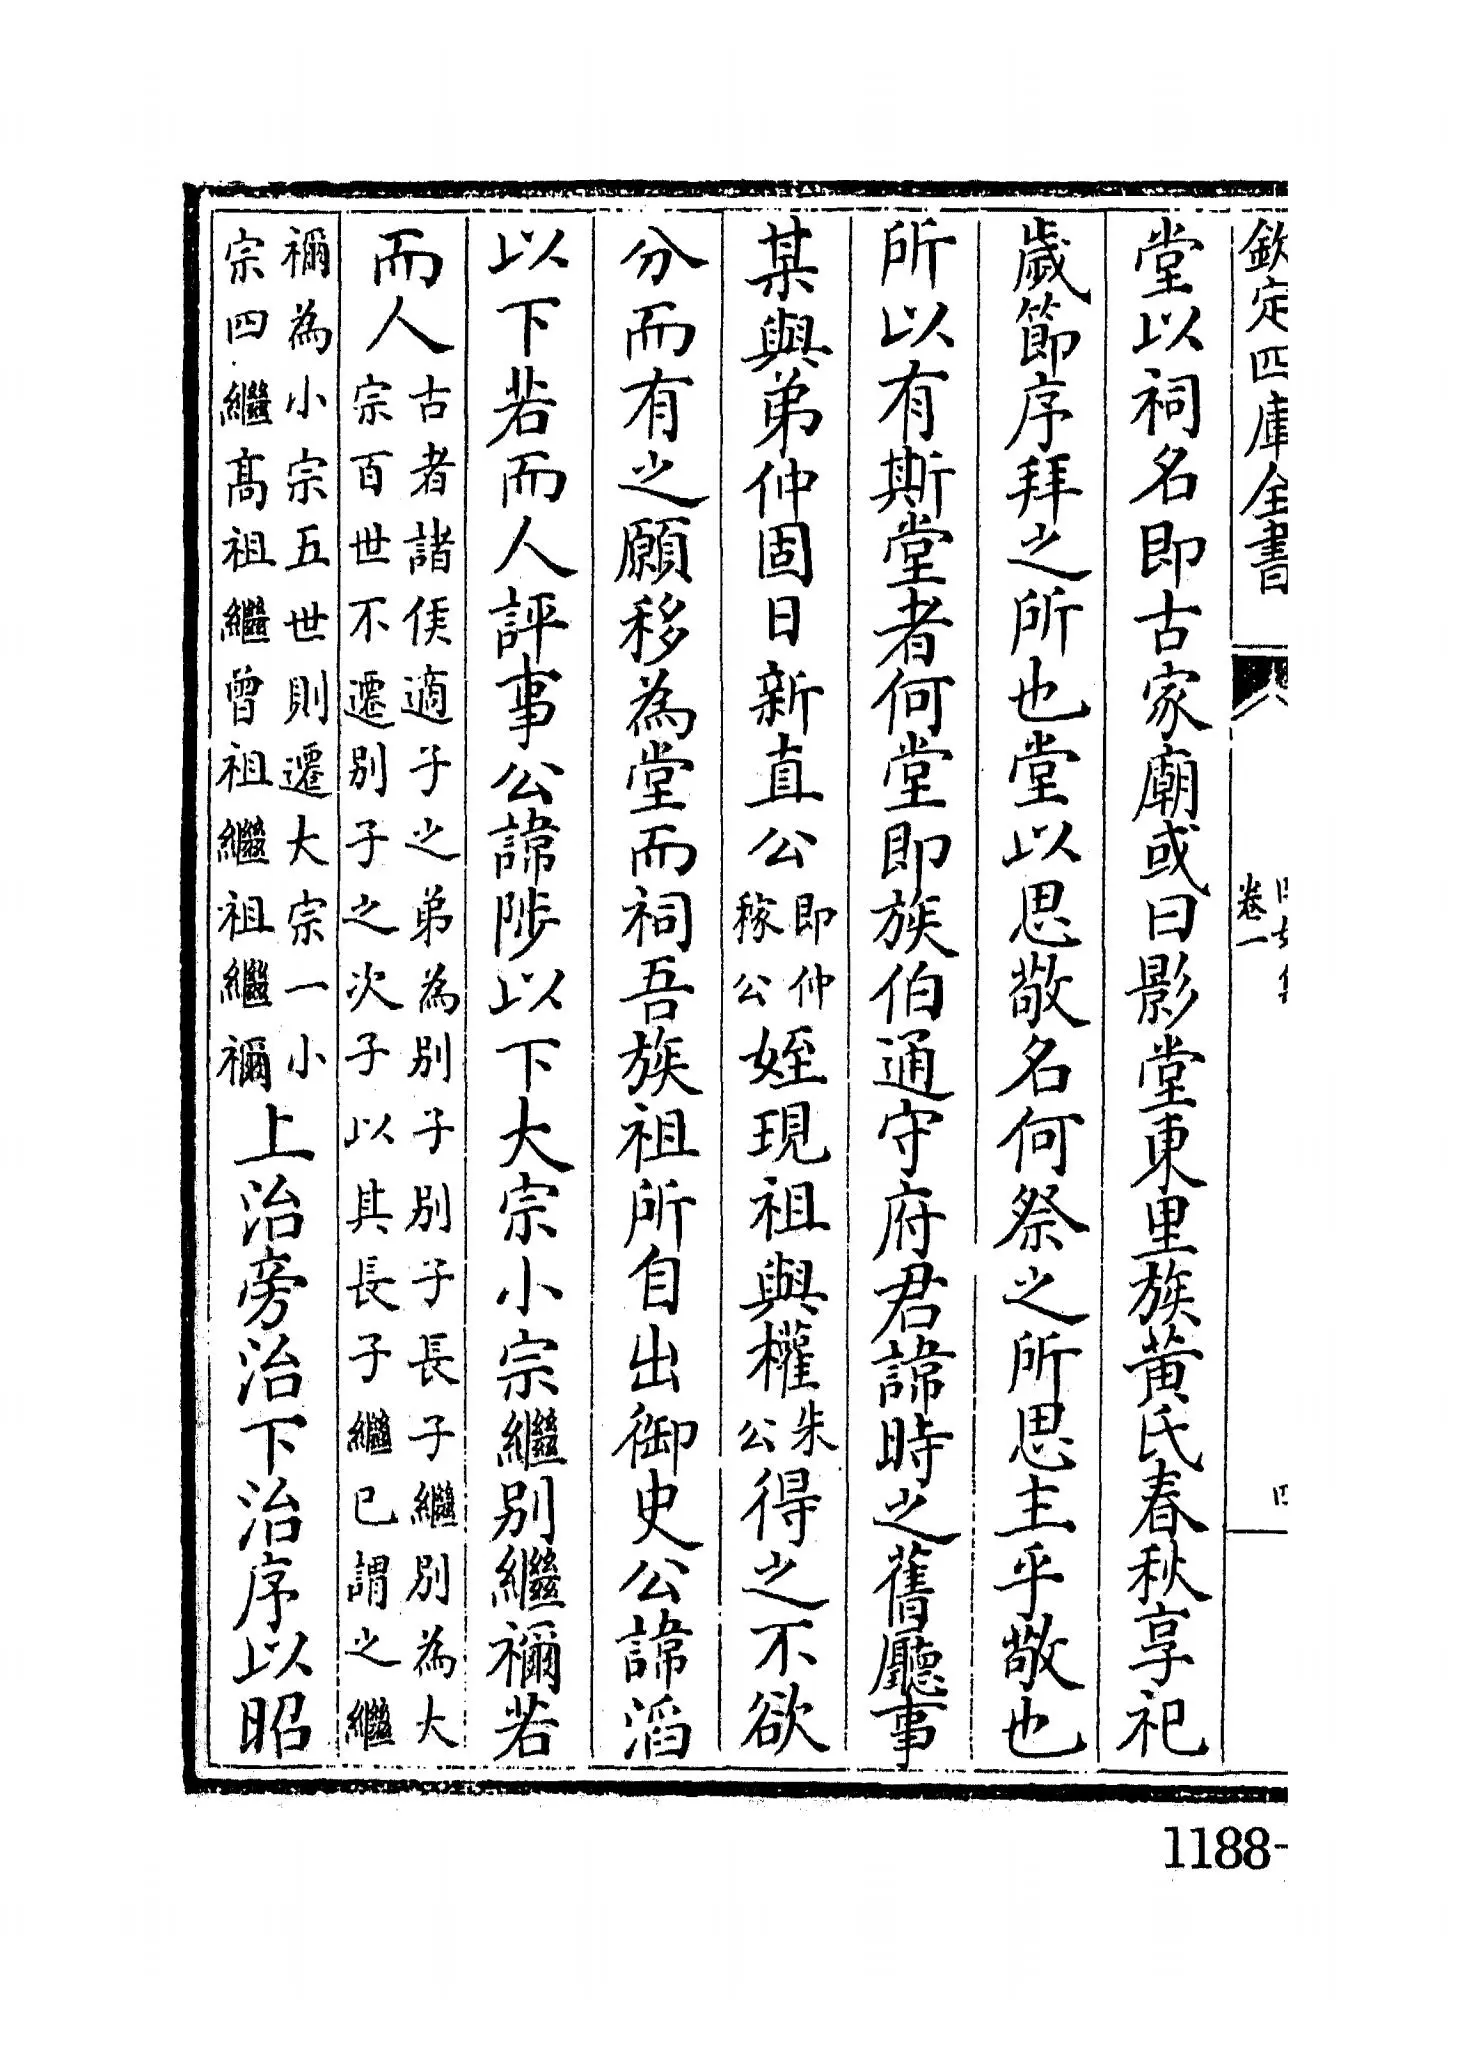 欽定四庫全書
卷一
堂以祠名即古家廟或曰影堂東里族黃氏春秋享祀
歲節序拜之所也堂以思敬名何祭之所思主乎敬也
所以有斯堂者何堂即族伯通守府君諱時之舊廳事
某與弟仲固日新直公即仲稼公姪現祖與權朱公得之不欲
分而有之願移為堂而祠吾族祖所自出御史公諱滔
以下若而人評事公諱陟以下大宗小宗繼別繼禰若
而人古者諸侯適子之弟為別子別子長子繼別為大
宗百世不遷別子之次子以其長子繼已謂之繼
禰為小宗五世則遷大宗一小
宗四繼高祖繼曾祖繼祖繼禰上治旁治下治序以昭
1188-